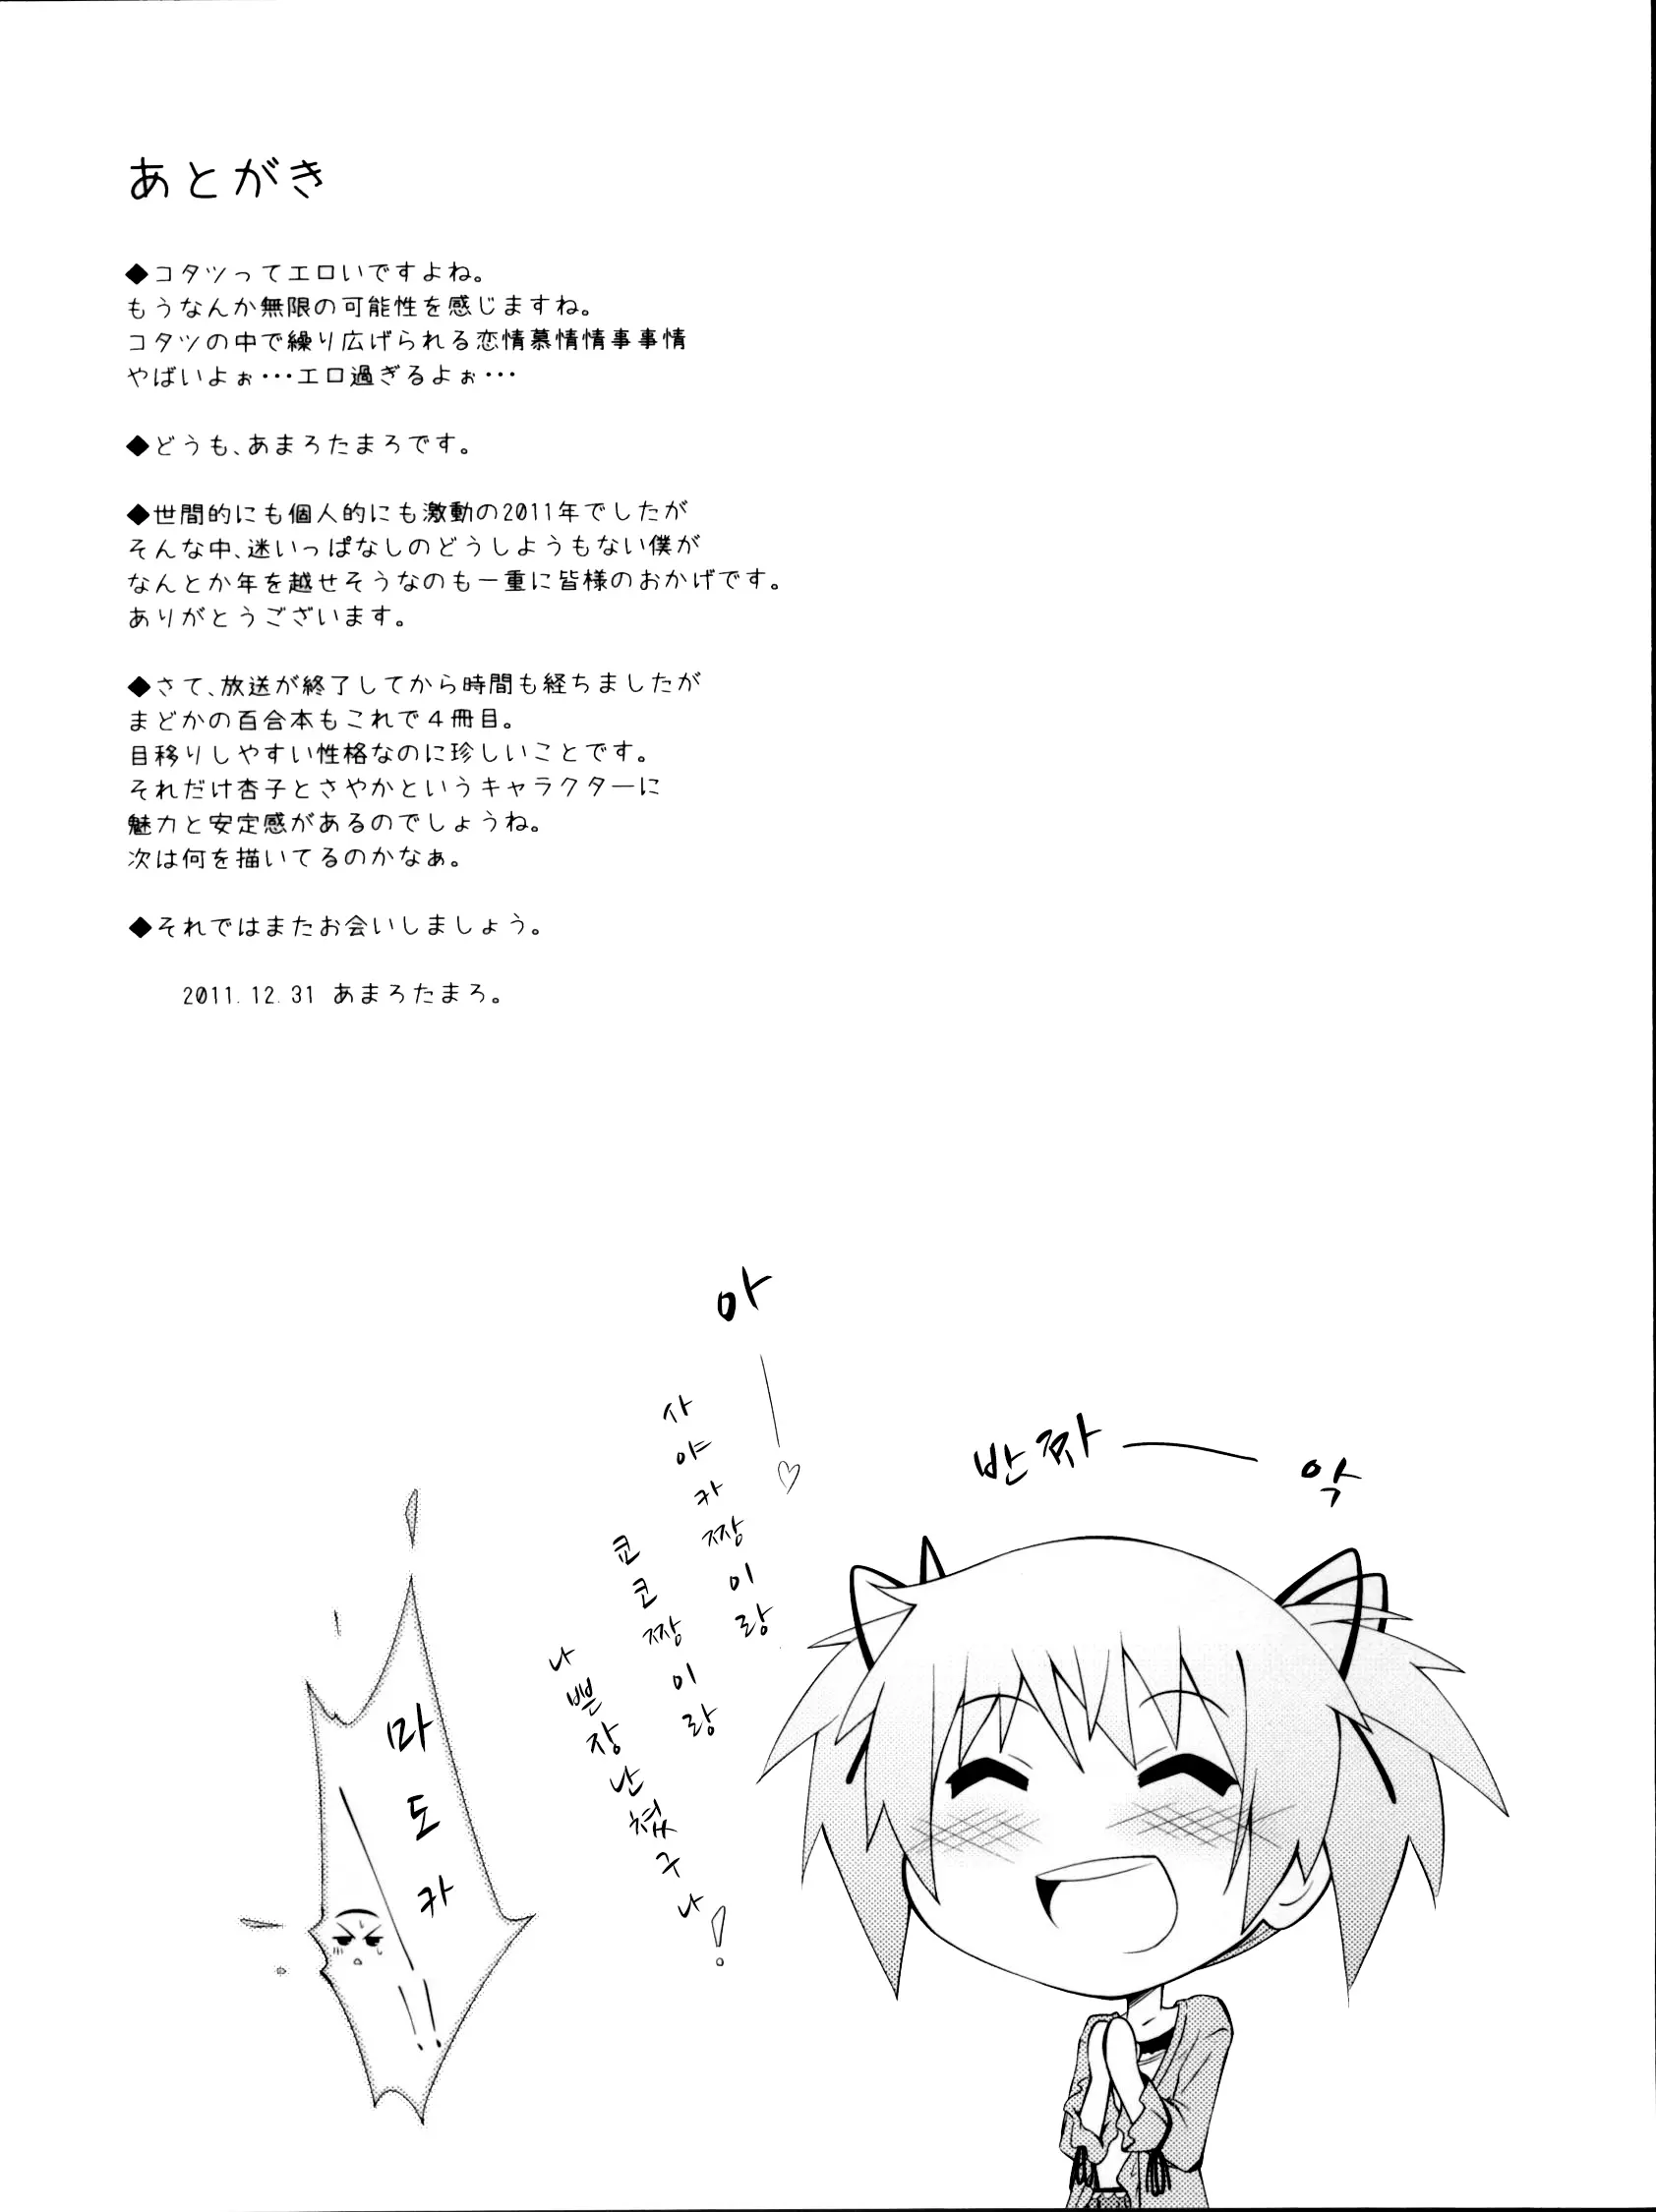 あとがき
◆コタツってエロいですよね。
もうなんか無限の可能性を感じますね。
コタツの中で繰り広げられる恋情慕情情事事情
やばいよぉ･･･エロ過ぎるよぉ･･･
◆どうも､あまろたまろです。
◆世間的にも個人的にも激動の2011年でしたが
そんな中､迷いっぱなしのどうしようもない僕が
なんとか年を越せそうなのも一重に皆様のおかげです。
ありがとうございます。
◆さて､放送が終了してから時間も経ちましたが
まどかの百合本もこれで４冊目。
目移りしやすい性格なのに珍しいことです。
それだけ杏子とさやかというキャラクターに
魅力と安定感があるのでしょうね。
次は何を描いてるのかなぁ。
◆それではまたお会いしましょう。
2011.12.31 あまろたまろ。
반짜——악
아—♡
사야카짱이랑
쿄코짱이랑
나쁜장난쳤구나!
마도카—!!